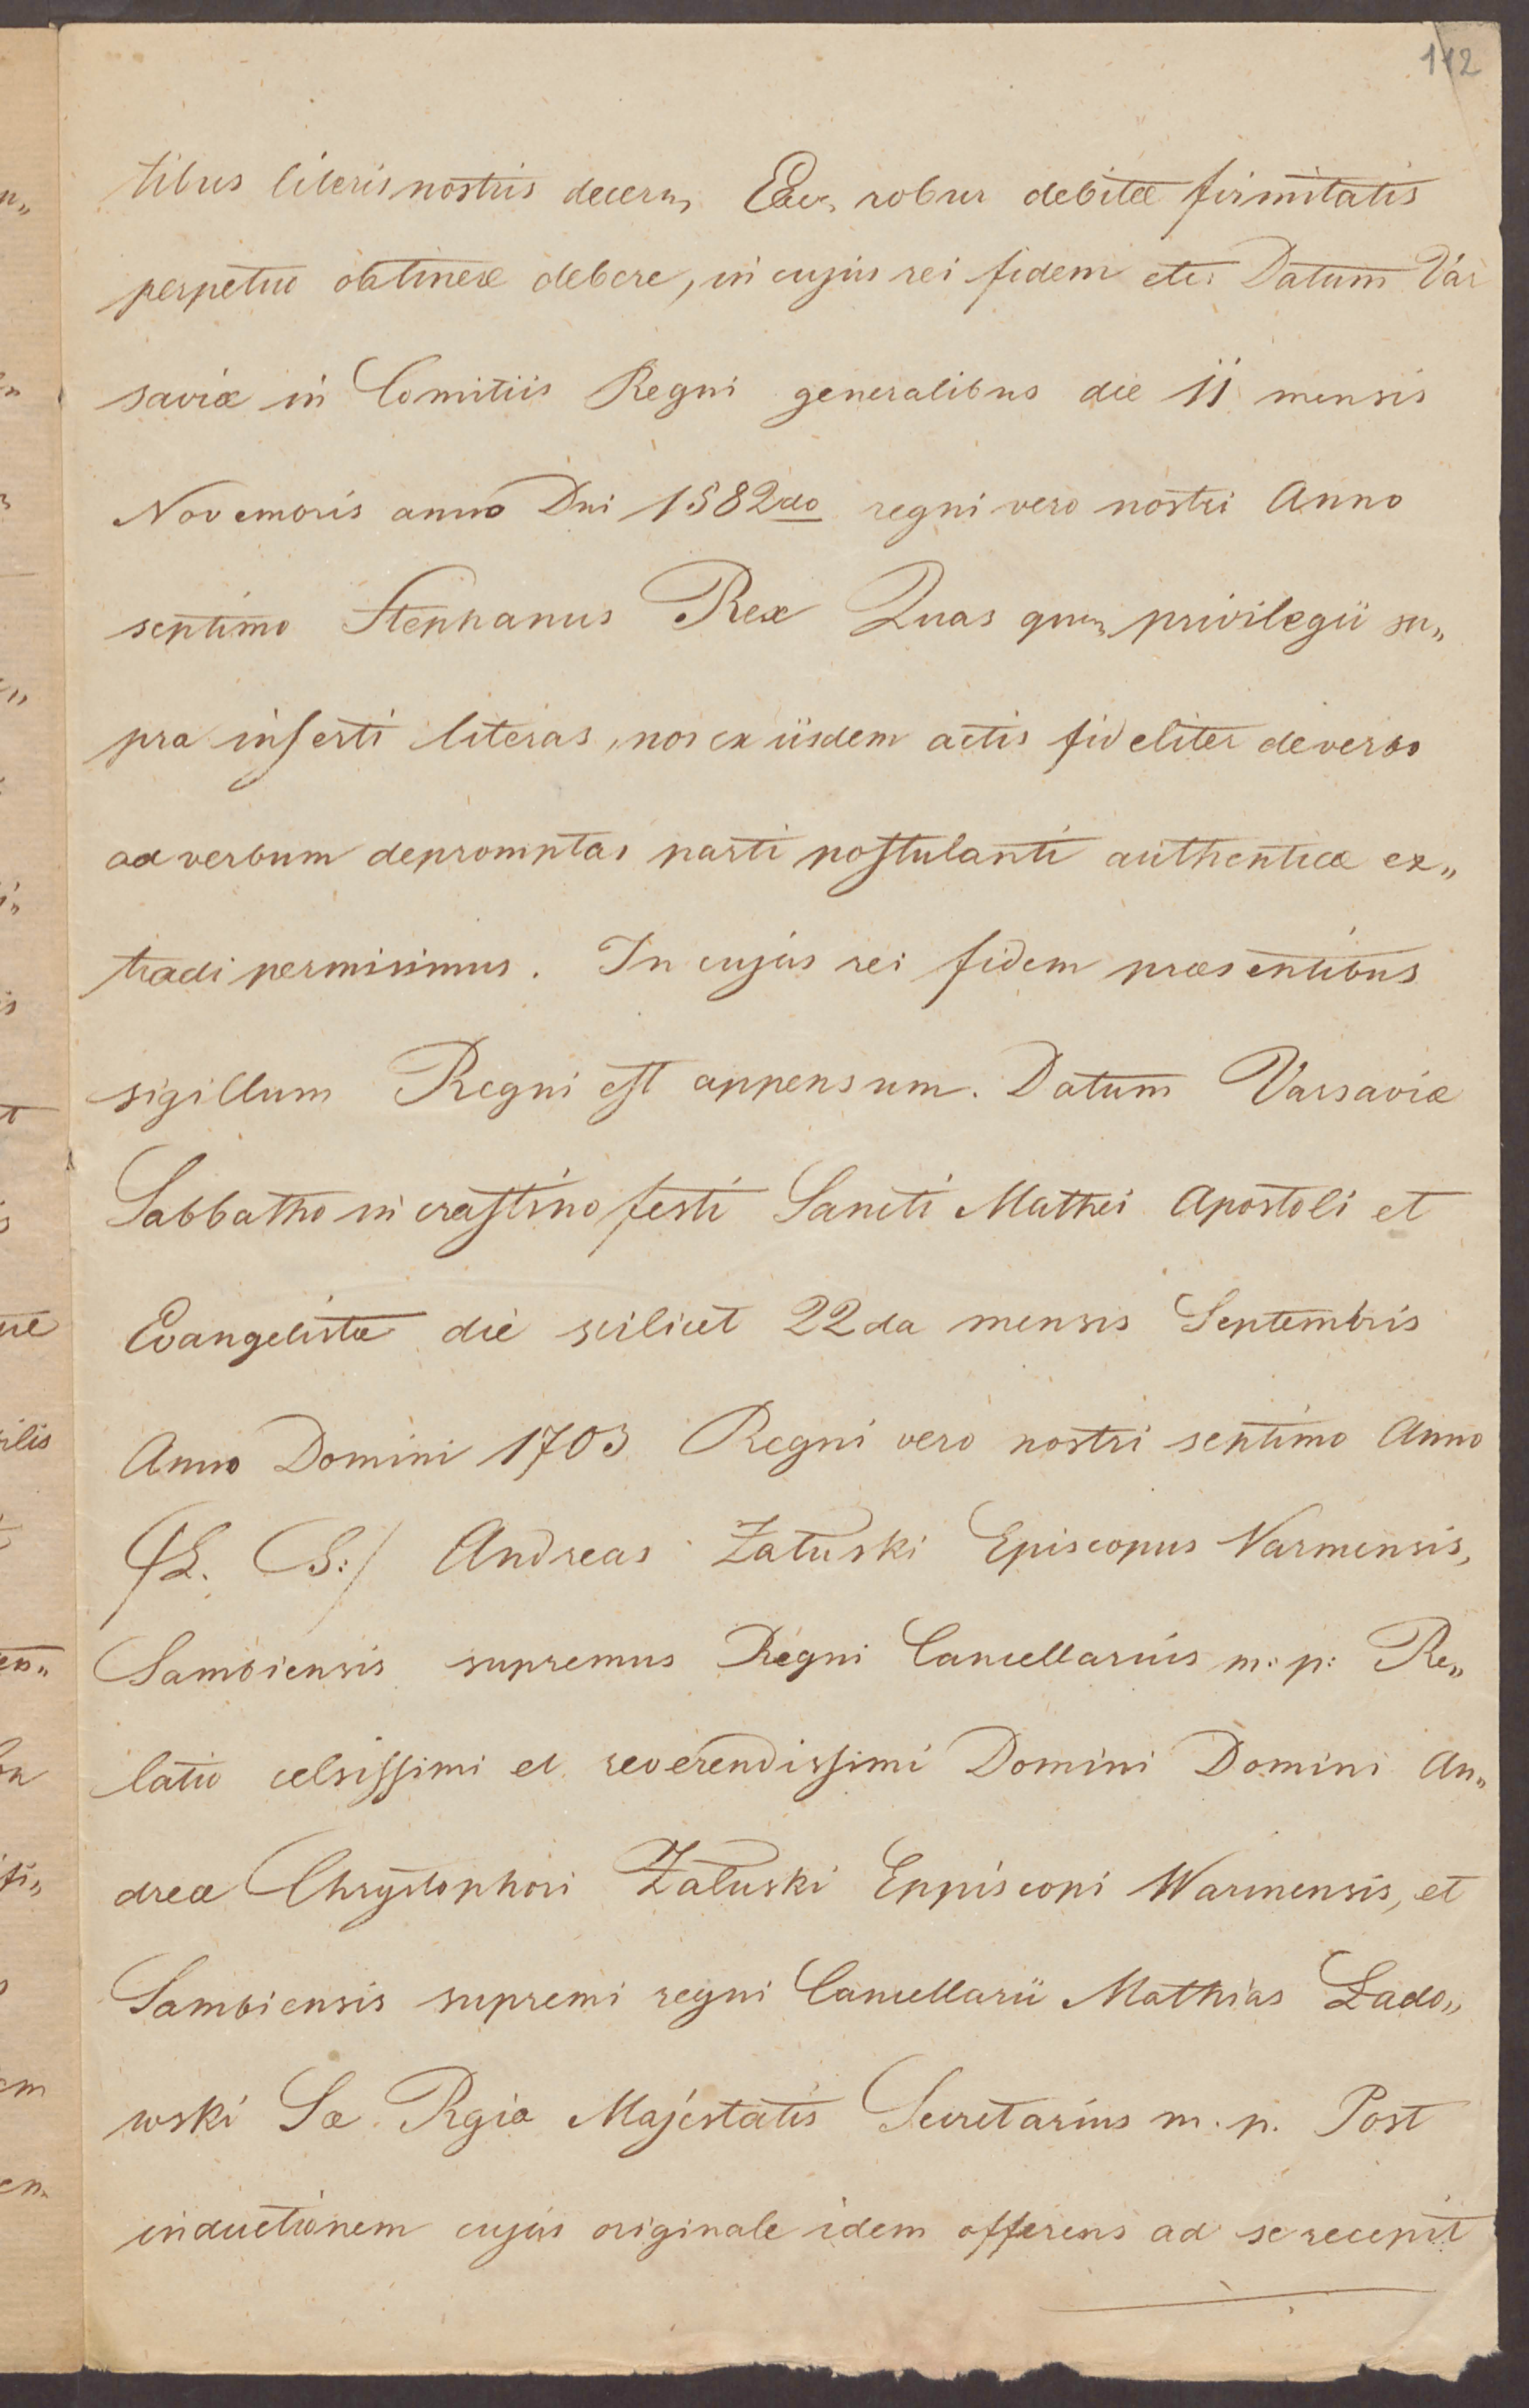 112
tibus literis nostris decern, Eaq, robur debitæ firmitatis
perpetuo obtinere debere, in cujus rei fidem etc: Datum Var
saviæ in Comitiis Regni generalibus die 11 mensis
Novembris anno Dni 1582do regni vero nostri Anno
septimo Stephanus Rex Quas quid, privilegii su„
pra inserti literas, nos ex iisdem actis fideliter de verbo
ad verbum depromptas parti postulanti authenticæ ex„
tradi permisimus. In cujus rei fidem præsentibus
sigillum Regni est appensum. Datum Varsaviæ
Sabbatho in crastino festi Sancti Mathei Apostoli et
Evangelistæ die scilicet 22da mensis Septembris
Anno Domini 1703 Regni vero nostri septimo Anno
/L. S:/ Andreas Załuski Episcopus Varmensis,
Sambiensis supremus Regni Cancellarius m: p: Re„
latio celsissimi et reverendissimi Domini Domini An„
dreæ Chrystophori Załuski Eppiscopi Warmensis, et
Sambiensis supremi regni Cancellarii Mathias Łado„
wski Sæ Rgiæ Majestatis Secretarius m. p. Post
inductionem cujus originale idem offerens ad se recepit